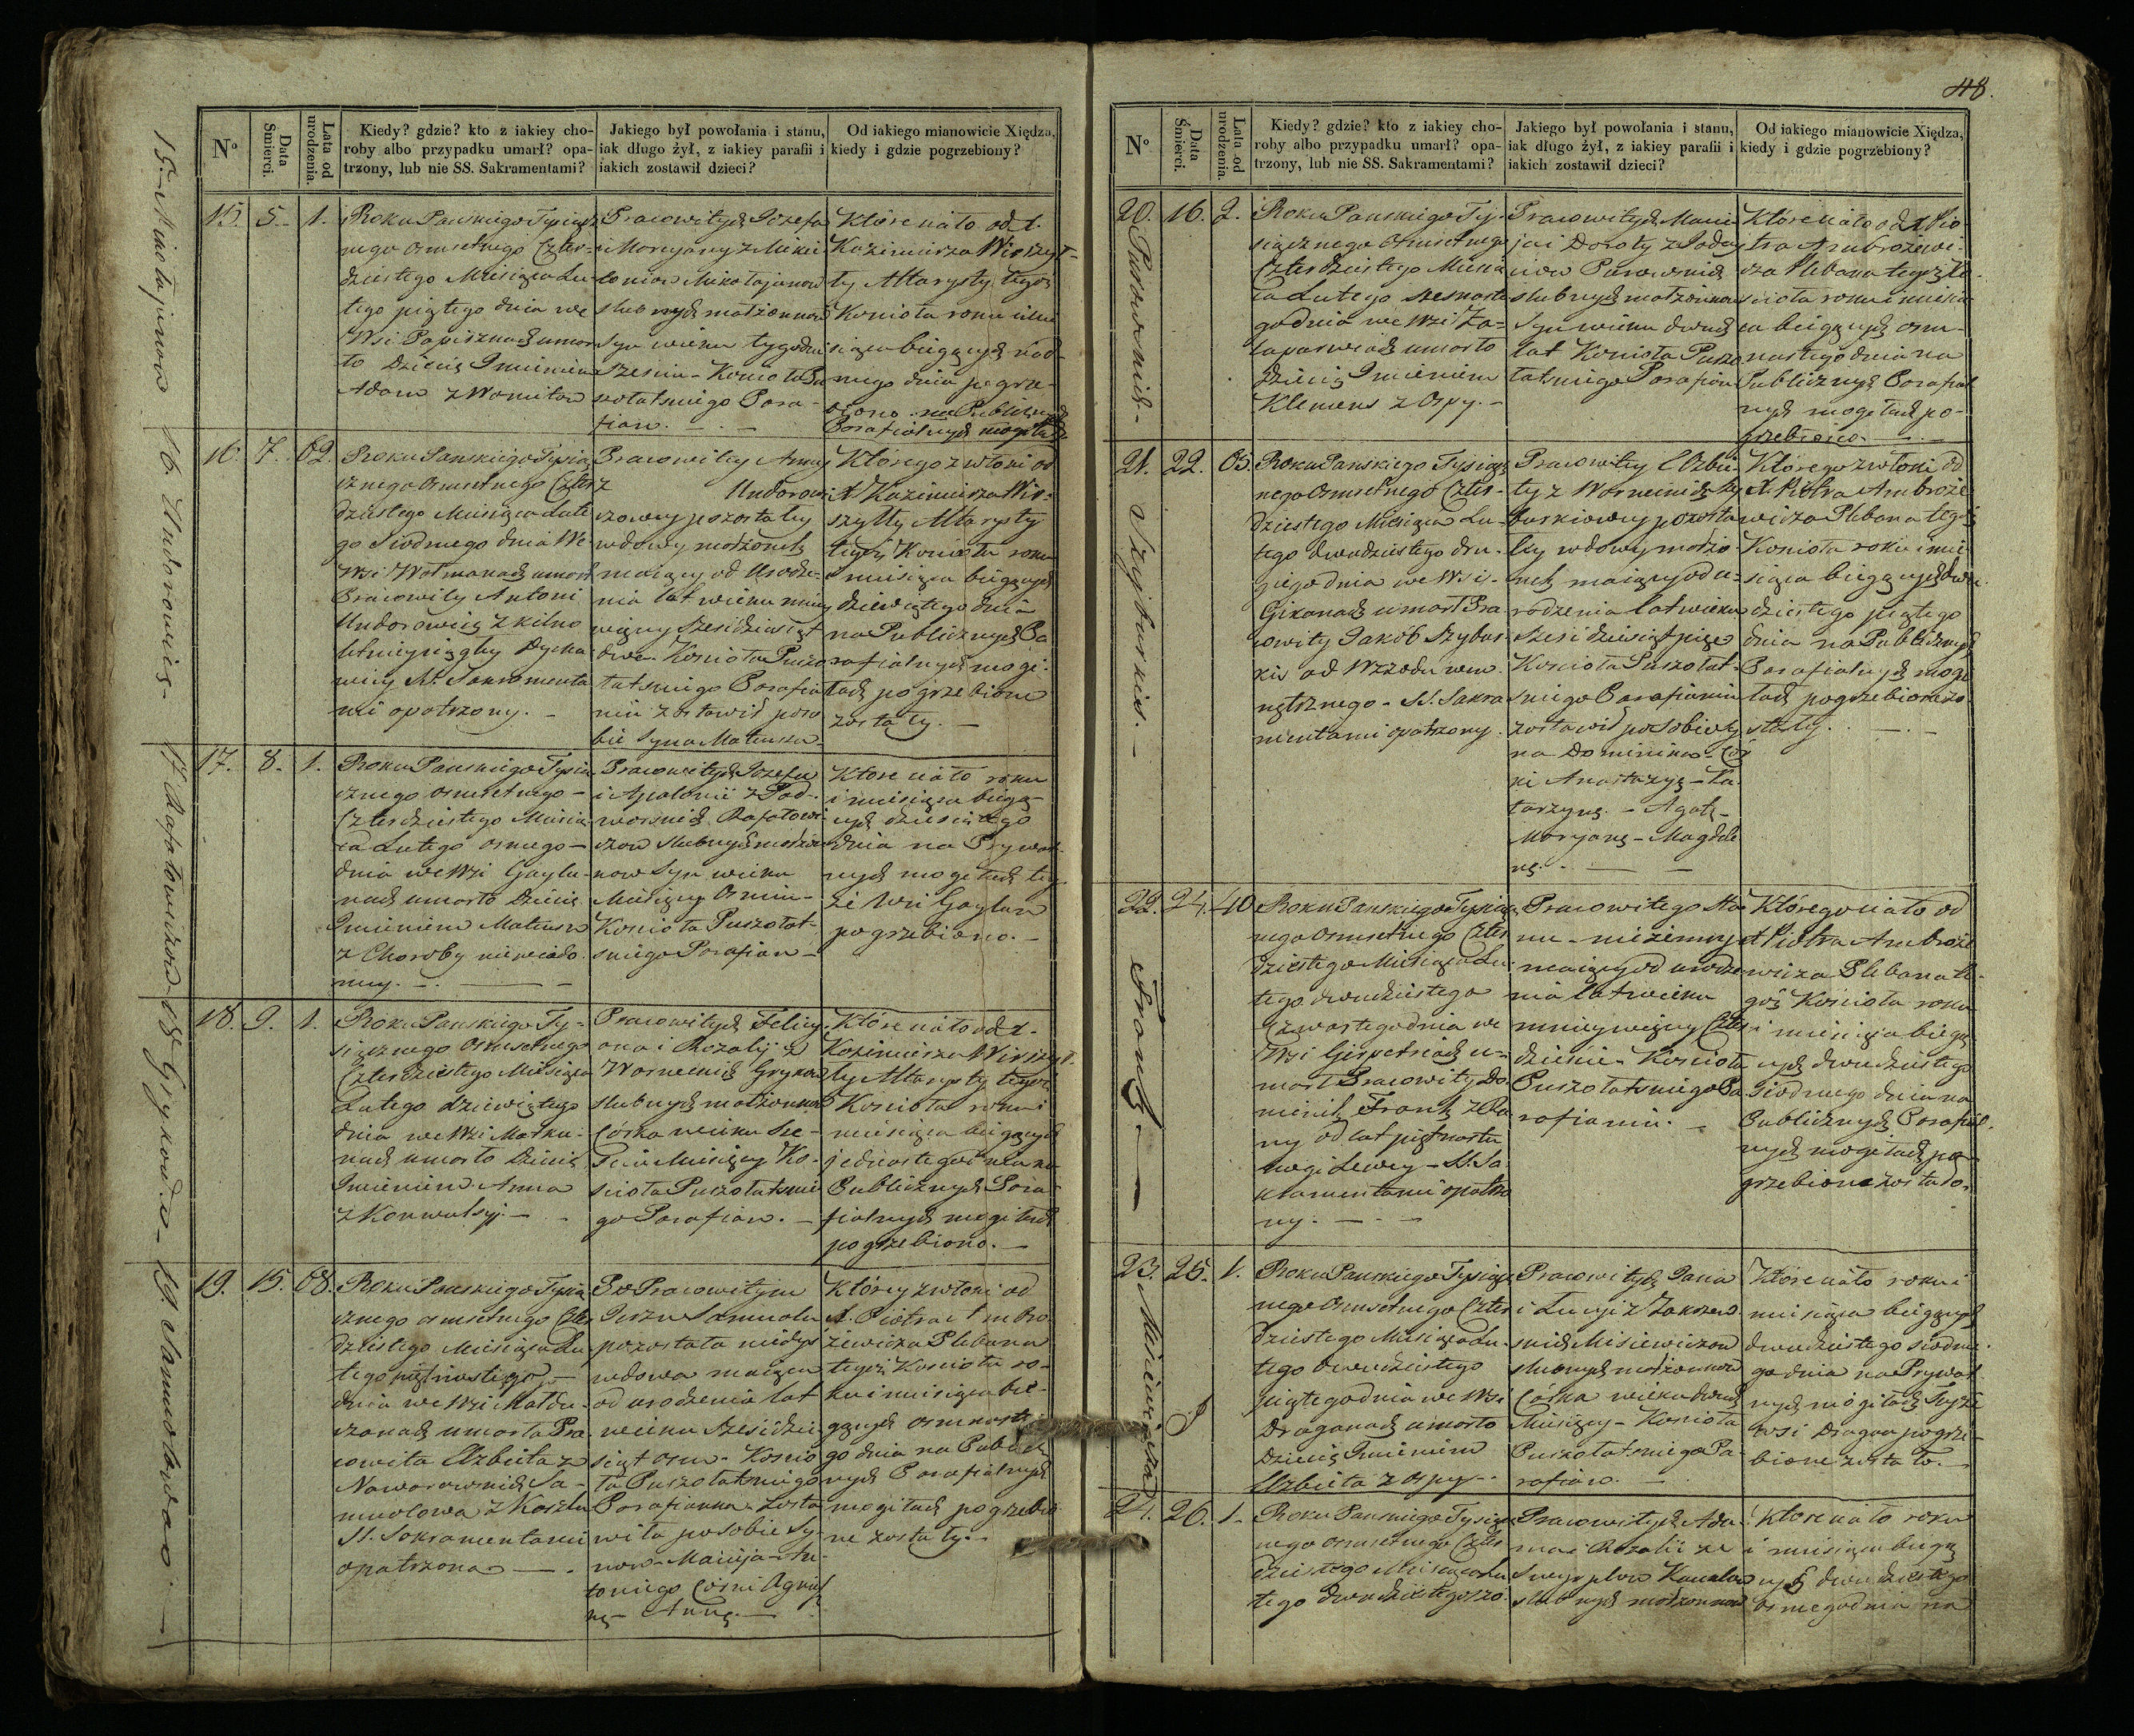 48.
Nº
Data Śmierci.
Lata od urodzenia.
Kiedy? gdzie? kto z iakiey cho-
roby albo przypadku umarł? opa-
trzony, lub nie SS. Sakramentami?
Jakiego był powołania i stanu,
iak długo żył, z iakiey parafii i
iakich zostawił dzieci?
Od iakiego mianowicie Xiędza,
kiedy i gdzie pogrzebiony?
15. Mikołajunow
15. 5. 1.
Roku Panskiego Tysiącz
nego Osmsetnego Czter-
dziestego Miesiąca Lu-
tego piątego dnia we
Wsi Papiszkach umar
ło Dziécię Imieniem
Adam z Womitow
Pracowitych Józefa
i Maryany z
Mikołajunow
slubnych małżonkow
Syn wieku tygodni
Szesciu - Koscioła Pu
szołatskiego Para-
fian. -
Które ciało od X.
Kazimierza Wirszył-
ły Altarysty tegoż
Koscioła roku i mie
siąca bieżących siod-
mego dnia pogrze-
biono na Publicznych
Parafialnych mogiłach
16. Undorowicz
16. 7. 62.
Roku Panskiego Tysią
cznego Osmsetnego Czter
dziestego Miesiąca Lute
go Siodmego dnia We
Wsi Wołmanach umarł
Pracowity Antoni
Undorowicz z kilko
letniey ciągłey Dycha
wicy SS. Sakramenta
mi opatrzony. -
Pracowitey Anny
z Undorowi
czowey pozostałey
wdowy małżonek
maiący od Urodze-
nia lat wieku mniey
więcey Szesédziesiąt
dwa - Koscioła Puszo
łatskiego Parafia
nin zostawił poso
bie Syna Mateusza
Którego zwłoki od
X Kazimierza Wir-
szyłły Altarysty
tegoż Koscioła roku
i miesiąca bieżących
dziewiątego dnia
na Publicznych Pa
rafialnych mogi-
łach pogrzebione
zostały. -
17. Rafałowiczow
17. 8. 1.
Roku Panskiego Tysią
cznego Osmsetnego -
Czterdziestego Miesią
ca Lutego osmego -
dnia we Wsi Gaylu-
nach umarło Dziécię
Imieniem Mateusz
z Choroby niewiado
mey. -
Pracowitych Józefa
i Apolonii z Pod-
worskich Rafałowi
czow slubnych małżon
kow Syn wieku
Miesięcy Osmiu -
Koscioła Puszołat-
skiego Parafian -
Które ciało roku
i miesiąca bieżą-
cych dziesiątego
dnia na Prywat-
nych mogiłach tey
że Wsi Gaylun
pogrzebiono. -
18. Grykow
18. 9. 1.
Roku Panskiego Ty-
siącznego Osmsetnego
Czterdziestego Miesiąca
Lutego dziewiątego
dnia we Wsi Morku-
nach umarło Dziécię
Imieniem Anna
z Konwulsyi. -
Pracowitych Felicy-
ana i Rozalij z
Wornecich Grykow
slubnych małżonkow
Córka wieku Sze-
sciu Miesięcy Ko-
scioła Puszołatskie
go Parafian. -
Które ciało od X.
Kazimierza Wirszył
ły Altarysty tegoż
Koscioła roku i
miesiąca bieżących
jedénastego dnia na
Publicznych Para-
fialnych mogiłach
pogrzebiono. -
19. Samulowa. -
19. 15. 68.
Roku Panskiego Tysią
cznego osmsetnego Czter
dziestego Miesiąca Lu
tego piętnastego -
dnia we Wsi
umarła Pra
cowita Elzbieta z
Nawarowskich Sa-
mulowa z Kaszlu
SS. Sakramentami
opatrzona -
Po Pracowitym
Samuelu
pozostała niegdys
wdowa maiąca
od urodzenia lat
wieku Szesédzie
siąt osm - Koscio
ła Puszołatskiego
Parafianka zosta
wiła po sobie Sy-
now - Macieja - An-
toniego Córki Agniesz
kę - Annę. -
Którey zwłoki od
X. Piotra Ambro
żewicza Plebana
tegoż Koscioła ro-
ku i miesiąca bie-
żących osmnaste
go dnia na Publicz
nych Parafialnych
mogiłach pogrzebio
ne zostały. -
Nº
Data Śmierci.
Lata od urodzenia.
Kiedy? gdzie? kto z iakiey cho-
roby albo przypadku umarł? opa-
trzony, lub nie SS. Sakramentami?
Jakiego był powołania i stanu,
iak długo żył, z iakiey parafii i
iakich zostawił dzieci?
Od iakiego mianowicie Xiędza,
kiedy i gdzie pogrzebiony?
Purowskich -
20. 16. 2.
Roku Panskiego Ty-
siącznego Osmsetnego
Czterdziestego Miesią
ca Lutego szesnaste
go dnia we Wsi Za-
umarło
Dziécię Imieniem
Klemens z Ospy. -
Pracowitych Macie
ja i Doroty z
Purowskich
slubnych małżonkow
Syn wieku dwuch
lat Koscioła Puszo
łatskiego Parafian
Które ciało od X Pio
tra Ambrożewi-
cza Plebana tegoż Ko
scioła roku i miesią
ca bieżących osm-
nastego dnia na
Publicznych Parafial
nych mogiłach po-
grzebiono. -
Szyburkis. -
21. 22. 65.
Roku Panskiego Tysiącz
nego Osmsetnego Czter-
dziestego Miesiąca Lu-
tego dwudziestego dru-
giego dnia we Wsi-
Gikonach umarł Pra
cowity Jakób Szybur
kis od Wrzodu wew
nętrznego - SS. Sakra
mentami opatrzony.
Pracowitey Elzbie-
ty z Worneikich Szy
burkiowey pozosta
łey wdowy małżo
nek maiący od u-
rodzenia lat wieku
szesédziesiąt pięc
Koscioła Puszołat-
skiego Parafianin
zostawił po sobie Sy
na Dominika - Cór
ki Anastazyę - Ka
tarzynę. - Agatę -
Maryanę - Magdale
nę. -
Którego zwłoki od
X. Piotra Ambroże
wicza Plebana tegoż
Koscioła roku i mie
siąca bieżących dwu
dziestego piątego
dnia na Publicznych
Parafialnych mogi
łach pogrzebione zo
stały. -
Frank -
22. 24. 40
Roku Panskiego Tysiącz
nego Osmsetnego Czter
dziestego Miesiąca Lu-
tego dwudziestego
Czwartego dnia we
Wsi u-
marł Pracowity Do
minik Frank z Ra
ny od lat piętnastu
nogi Lewey - SS. Sa
kramentami opatrzo
ny. -
Pracowitego
maiący od urodze
nia lat wieku
mniey więcey Czter
dziescie - Koscioła
Puszołatskiego Pa
rafianin. -
Którego ciało od
X Piotra Ambroże
wicza Plebana te-
goż Koscioła roku
i miesiąca bieżą
cych dwudziestego
Siodmego dnia na
Publicznych Parafial.
nych mogiłach po-
grzebione zostało.
Misiewiczow
23. 25. 1.
Roku Panskiego Tysiącz
nego Osmsetnego Czter
dziestego Miesiąca Lu-
tego dwudziestego
piątego dnia we Wsi
Draganach umarło
Dziécię Imieniem
Elzbieta z ospy -
Pracowitych Jana
i Łucyi z Zakrzew
skich Misiewiczow
slubnych małżonkow
Córka wieku dwuch
Miesięcy - Koscioła
Puszołatskiego Pa-
rafian. -
Które ciało roku i
miesiąca bieżących
dwudziestego siodme
go dnia na Prywat
nych mogiłach Teyże
Wsi Dragan pogrze-
bione zostało. -
24. 26. 1.
Roku Panskiego Tysiącz
nego Osmsetnego Czter
dziestego Miesiąca Lu
tego dwudziestego szo.
Pracowitych Ada-
ma i Rozalii ze
slubnych małżonkow
Które ciało roku
i miesiąca bieżą
cych dwudziestego
osmego dnia na